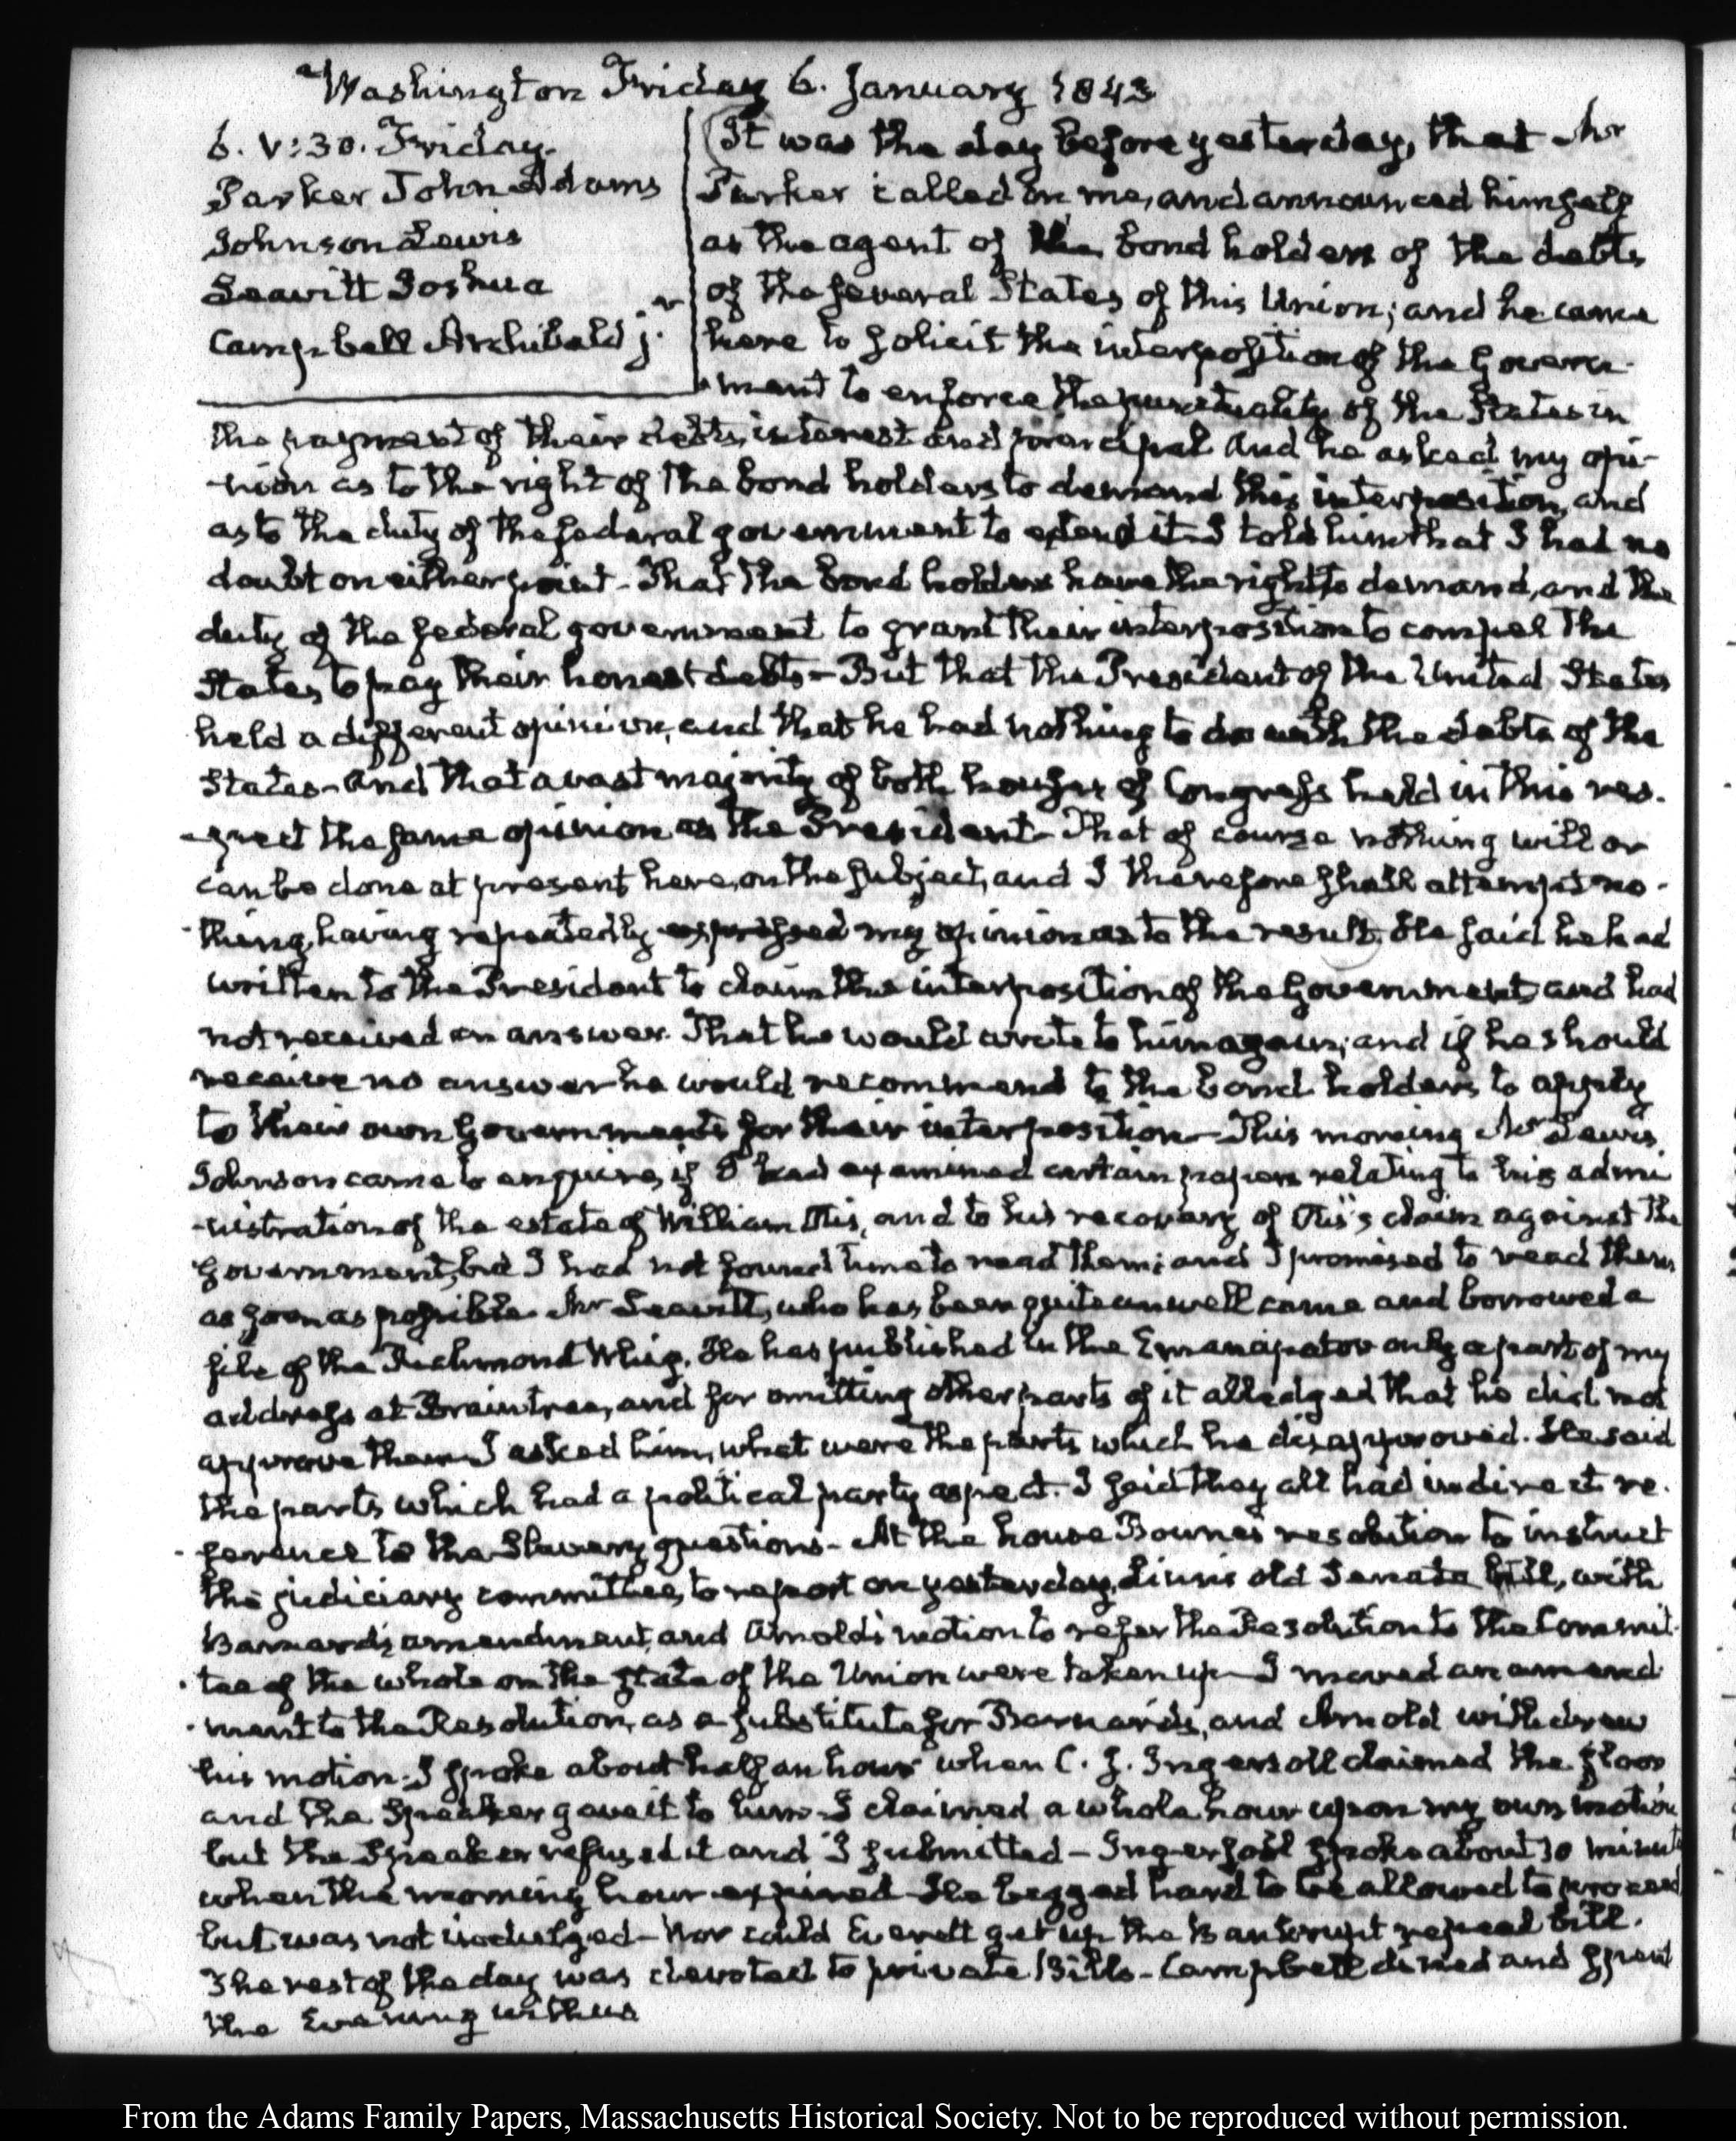 Washington Friday 6. January 1843
6. V:30. Friday.
Parker John Adams
Johnson Lewis
Leavitt Joshua
Campbell Archibald jr.
It was the day before yesterday, that Mr
Parker called on me, and announced himself
as the agent of the bond holders of the debts
of the several States of this Union; and he came
here to solicit the interposition of the Govern-
ment to enforce the punctuality of the States in
the payment of their debts, interest and principal and he asked my opi-
-nion as to the right of the bond holders to demand this interposition, and
as to the duty of the federal government to extend it. I told him that I had no
doubt on either point - That the bond holders have the right to demand, and the
duty of the federal government to grant their interposition to compel the
States, to pay their honest debts - But that the President of the United States
held a different opinion, and that he had nothing to do with the debts of the
States - And that a vast majority of both houses of Congress held in this res-
-pect the same opinion as the President - That of course nothing will or
can be done at present here, on the subject, and I therefore shall attempt no-
-thing, having repeatedly expressed my opinion as to the result. He said he had
written to the President to claim the interposition of the Government and had
not received an answer. That he would write to him again; and if he should
receive no answer he would recommend to the bond holders to apply
to their own Governments for their interposition - This morning Mr Lewis
Johnson came to enquire, if I had examined certain papers relating to his admi
-nistration of the estate of William Otis, and to his recovery of Otis's claim against the
government, but I had not found time to read them; and I promised to read them
as soon as possible. Mr Leavitt, who has been quite unwell came and borrowed a
file of the Richmond Whig. He has published in the Emancipator only a part of my
address at Braintree, and for omitting other parts of it alledged that he did not
approve them - I asked him, what were the parts which he disapproved. He said
the parts which had a political party aspect. I said they all had indirect re-
-ference to the Slavery questions - At the house Bowne's resolution to instruct
the judiciary committee, to report on yesterday, Linn's old Senate bill, with
Barnard's amendment, and Arnold's motion to refer the Resolution to the Commit-
-tee of the whole on the state of the Union were taken up - I moved an amend
-ment to the Resolution, as a substitute for Barnard's, and Arnold withdrew
his motion. I spoke about half an hour when C. J. Ingersoll claimed the floor
and the Speaker gave it to him - I claimed a whole hour upon my own motion
but the Speaker refused it and I submitted - Ingersoll spoke about 10 minut
when the morning hour expired - He begged hard to be allowed to proceed
but was not indulged - Nor could Everett get up the Bankrupt repeal bill.
The rest of the day was devoted to private Bills - Campbell dined and spent
the Evening with us
From the Adams Family Papers, Massachusetts Historical Society. Not to be reproduced without permission.